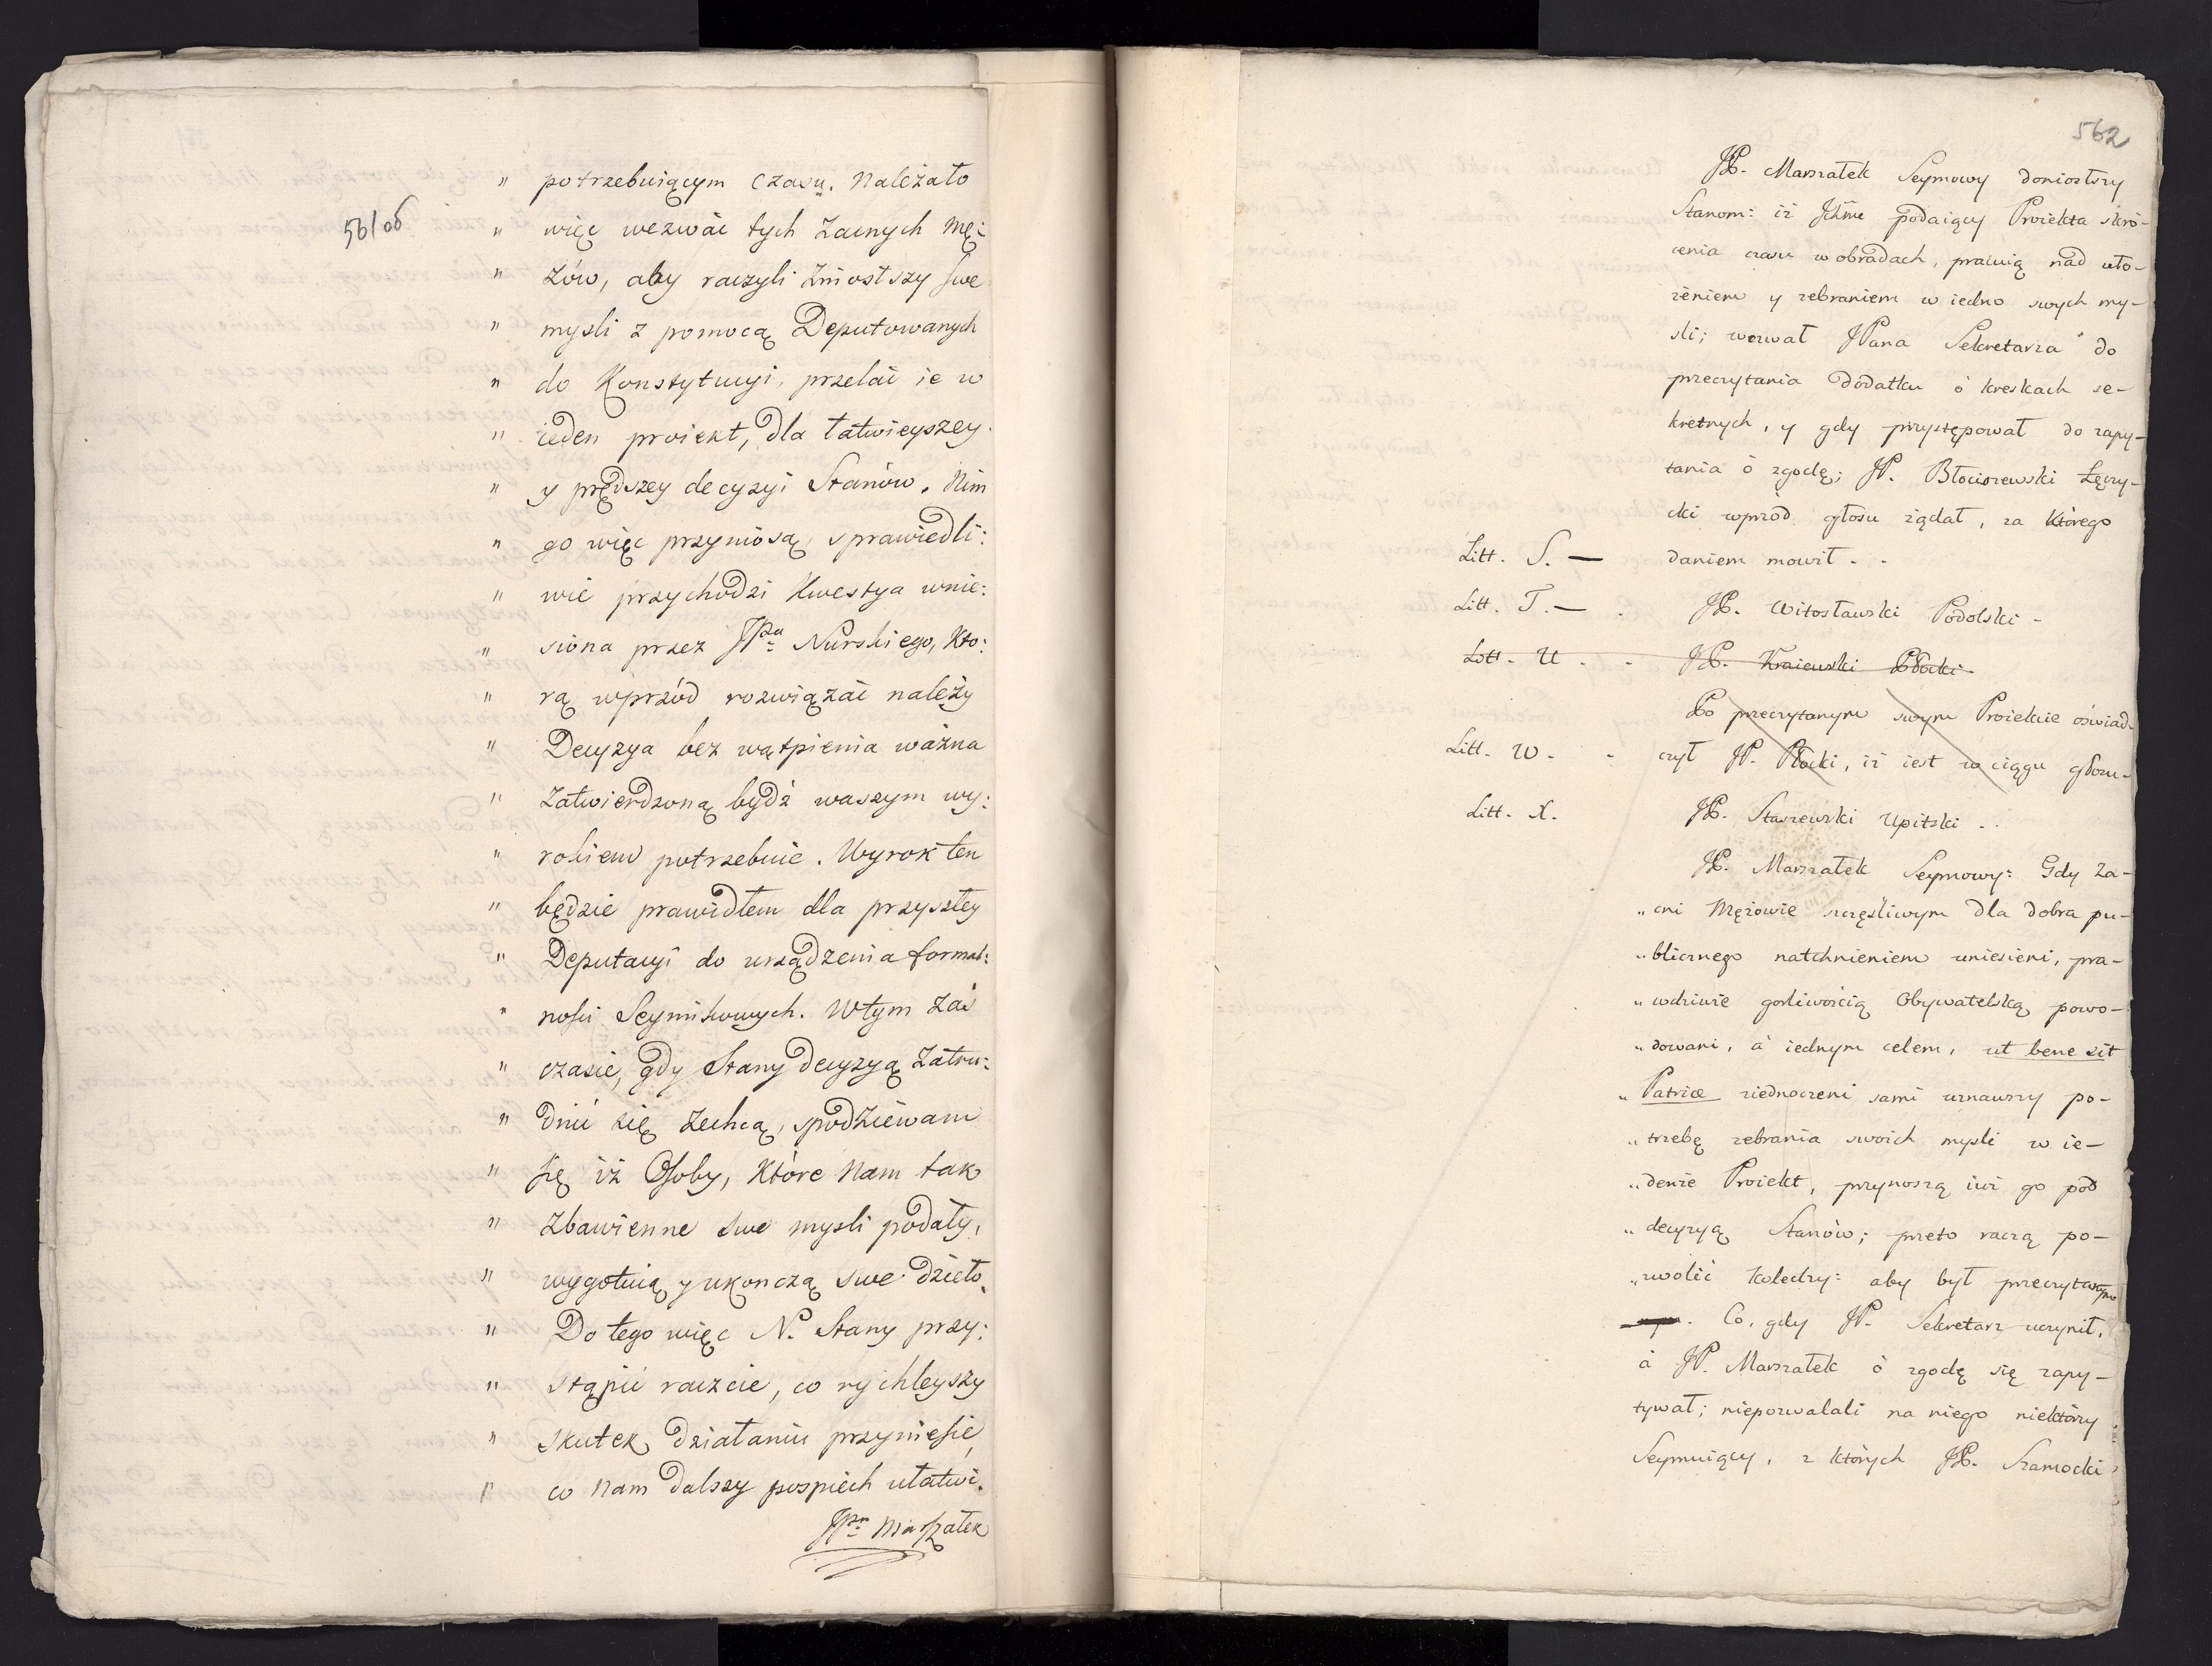 561об
" potrzebuiącym czasu. Należało
" więc wezwać tych zacnych Mę:
" żów, aby raczyli zniosłszy swe
" mysli z pomocą Deputowanych
" do Konstytucyi, przelać ie w
" ieden proiekt, dla łatwieyszey
" y prędszey decyzyi Stanów. Nim
" go więc przyniosą, sprawiedli:
" wie przychodzi Kwestya wnie:
" siona przez JPna Nurskiego, Kto:
" rą wprzód rozwiązać należy
" Decyzya bez wątpienia ważna
" Zatwierdzoną bydź waszym wy:
" rokiem potrzebuie. Wyrok ten
" będzie prawidłem dla przyszłey
" Deputacyi do urządzenia formal:
" ności Seymikowych. W tym zaś
" czasie, gdy Stany decyzyą zatru:
" dnić się zechcą, spodziewam
" się iż Osoby, Które Nam tak
" zbawienne swe mysli podały,
" wygotuią y ukonczą swe dzieło.
" Do tego więc N. Stany przy:
" stąpić raczcie, co rychleyszy
" skutek działaniu przyniesie,
" co Nam dalszy pospiech ułatwi.
JPn Marszałek
562
JP. Marszałek Seymowy doniosłszy
Stanom: iż Jchme podaiący Proiekta skró-
cenia czasu w obradach, pracuią nad uło-
żeniem y zebraniem w iedno swych my-
sli; wezwał JPana Sekretarza do
przeczytania dodatku ó kreskach se-
kretnych, y gdy przystępował do zapy-
tania ó zgodę; JP. Błociszewski Łęczy-
cki wprzód głosu żądał, za którego
Litt. S. — daniem mowił. -
Litt. T. — - JP. Witosławski Podolski -
Litt. U - - JP. Kraiewski Płocki -
Po przeczytanym swym Proiekcie óswiad-
Litt. W. - - czył JP. Płocki, iż iest w ciągu głosu-
Litt. X. JP. Staszewski Upitski. -
JP. Marszałek Seymowy: Gdy Za-
" cni Mężowie szczęśliwym dla dobra pu-
" blicznego natchnieniem uniesieni, pra-
" wdziwie gorliwością Obywatelską powo-
" dowani, á iednym celem, ut bene sit
" Patriæ ziednoczeni sami uznawszy po-
" trzebę zebrania swoich mysli w ie-
" denże Proiekt, przynoszą iuż go pod
" decyzyą Stanów; przeto raczą po-
" zwolić Koledzy: aby był przeczytanym
. Co, gdy JP. Sekretarz uczynił,
á JP. Marszałek ó zgodę się zapy-
tywał; niepozwalali na niego niektórzy
Seymuiący, z których JP. Szamocki